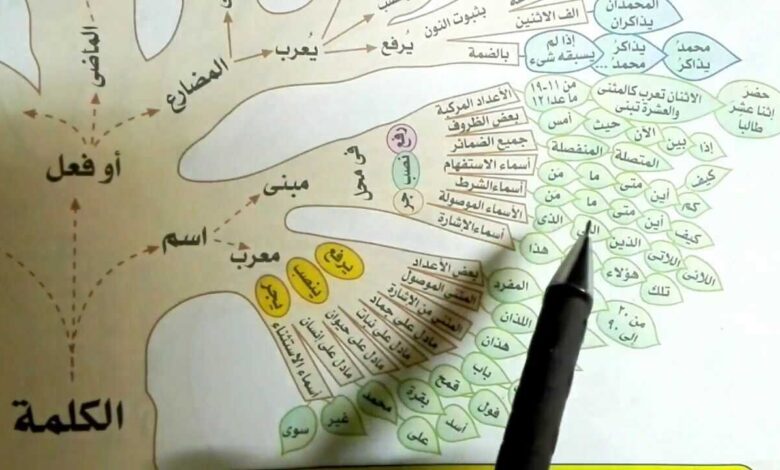 المحمدان
يذاكران
الف الاثنين
بثبوت النون
محمدٌ
يذاكرُ
يذاكرُ
محمدُ ...
إذا لم
يسبقه شىء
بالضمة
يُرفع
يُعرب
المضارع
الماضى
أو فعل
حضر
إثنا عشر
طالبا
الاثنان تعرب كالمثنى
والعشرة تبنى
من ١١-١٩
ماعدا ١٢
الأعداد المركبة
إذا
بين
الآن
حيث
أمس
بعض الظروف
المتصلة
المنفصلة
جميع الضمائر
كيف
أين
متى
ما
من
أسماء الاستفهام
كم
كيف
أين
متى
ما
من
أسماء الشرط
اللائى
اللاتى
الذين
الذى
الأسماء الموصولة
تلك
هؤلاء
هذا
أسماء الإشارة
رفع
نصب
جر
فى محل
مبنى
اسم
معرب
يرفع
ينصب
يجر
من ٢٠
إلى ٩٠
المفرد
بعض الأعداد
اللذان
المثنى الموصول
هذان
المثنى من الإشارة
باب
مادل على جماد
قمح
فول
مادل على نبات
بقرة
أسد
مادل على حيوان
محمد
على
مادل على إنسان
غير
سوى
أسماء الاستثناء
الكلمة